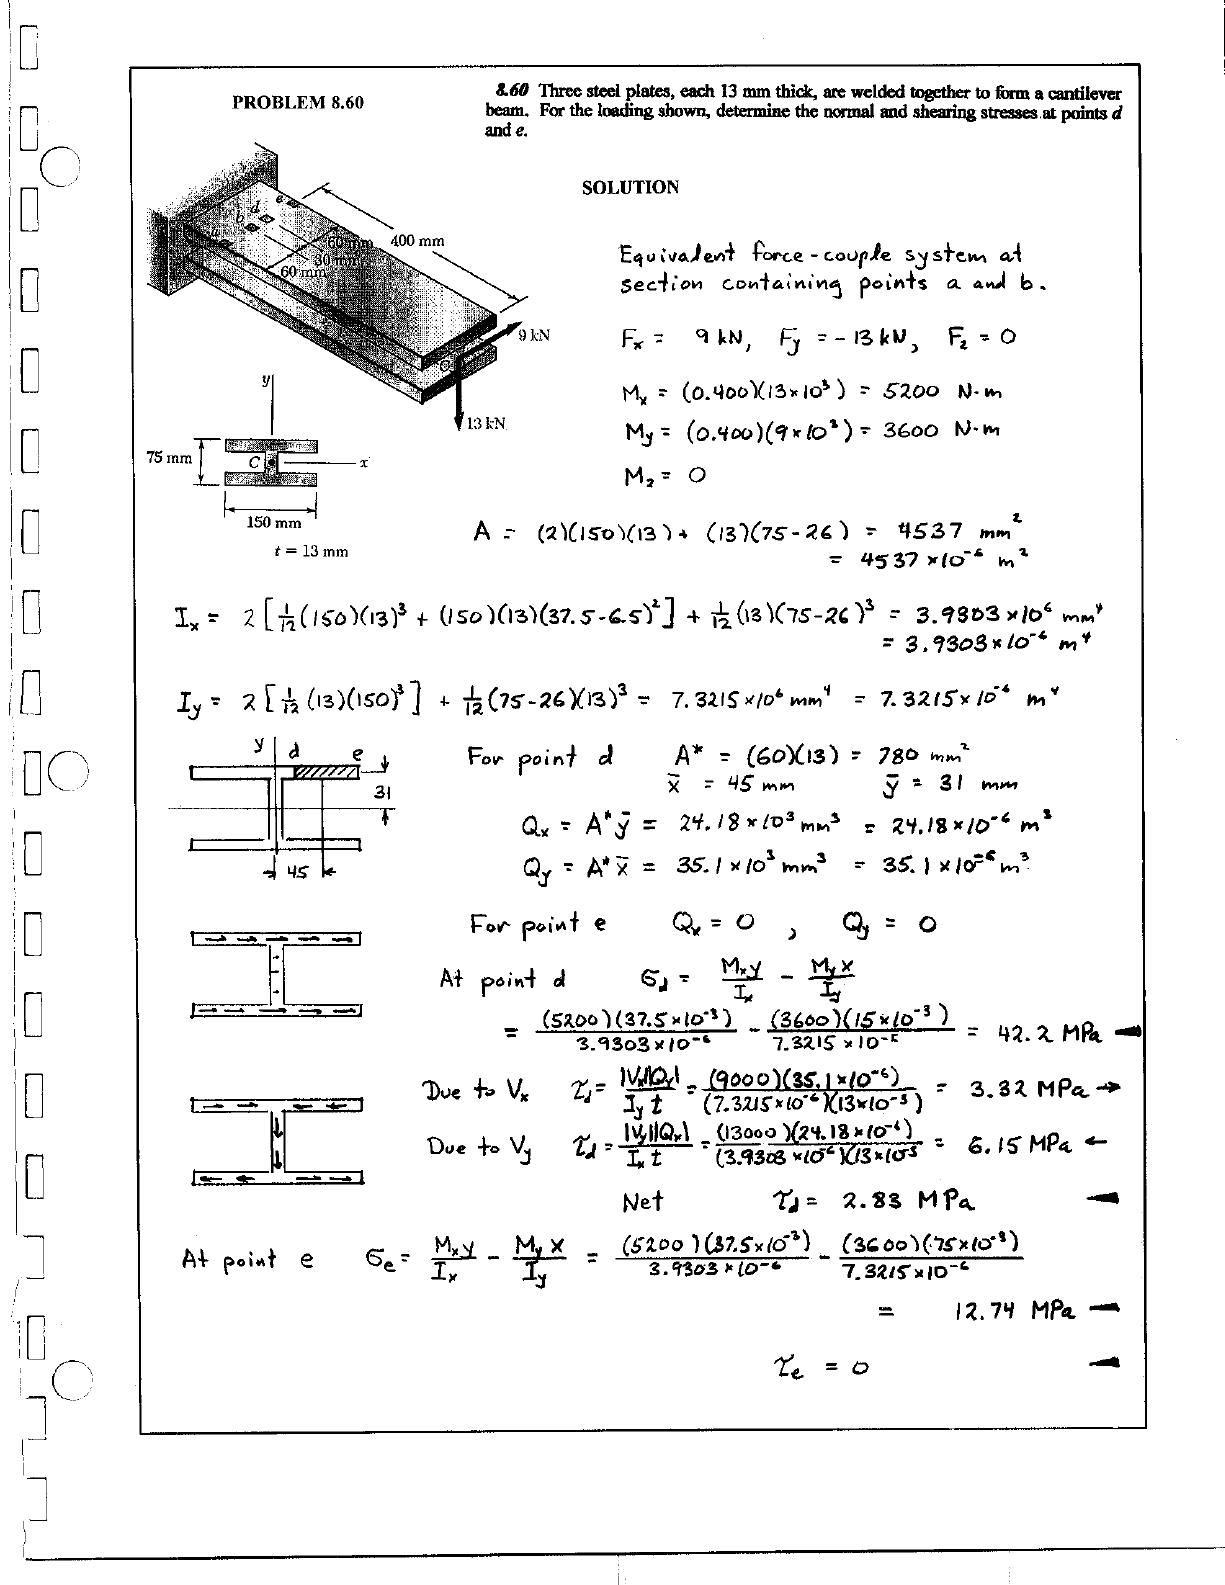 PROBLEM 8.60
8.60 Three steel plates, each 13 mm thick, are welded together to form a cantilever
beam. For the loading shown, determine the normal and shearing stresses at points d
and e.
SOLUTION
e
d
b
a
60 mm
30 mm
60 mm
400 mm
9 kN
C
13 kN
y
75 mm
C
x
150 mm
t = 13 mm
Equivalent force-couple system at
section containing points a and b.
Fx = 9 kN, Fy = -13 kN, Fz = 0
Mx = (0.400)(13×10³) = 5200 N·m
My = (0.400)(9×10³) = 3600 N·m
Mz = 0
A = (2)(150)(13) + (13)(75-26) = 4537 mm²
= 4537 ×10⁻⁶ m²
Ix = 2 [1/12 (150)(13)³ + (150)(13)(37.5-6.5)²] + 1/12 (13)(75-26)³ = 3.9303 ×10⁶ mm⁴
= 3.9303×10⁻⁶ m⁴
Iy = 2 [1/12 (13)(150)³] + 1/12 (75-26)(13)³ = 7.3215 ×10⁶ mm⁴ = 7.3215× 10⁻⁶ m⁴
y d e
31
45
For point d A* = (60)(13) = 780 mm²
x̄ = 45 mm ȳ = 31 mm
Qx = A*ȳ = 24.18 ×10³ mm³ = 24.18 ×10⁻⁶ m³
Qy = A*x̄ = 35.1 ×10³ mm³ = 35.1 ×10⁻⁶ m³
For point e Qx = 0 , Qy = 0
At point d σd = Mxy/Ix - Myx/Iy
= (5200)(37.5×10⁻³)/3.9303×10⁻⁶ - (3600)(15×10⁻³)/7.3215 ×10⁻⁶ = 42.2 MPa
Due to Vx τd = |Vx||Qy|/Iy t = (9000)(35.1×10⁻⁶)/(7.3215×10⁻⁶)(13×10⁻³) = 3.32 MPa →
Due to Vy τd = |Vy||Qx|/Ix t = (13000)(24.18×10⁻⁶)/(3.9303 ×10⁻⁶)(13×10⁻³ = 6.15 MPa ←
Net τd = 2.83 MPa
At point e σe = Mxy/Ix - My x/Iy = (5200)(37.5×10⁻³)/3.9303 ×10⁻⁶ - (3600)(75×10⁻³)/7.3215×10⁻⁶
= 12.74 MPa
τe = 0